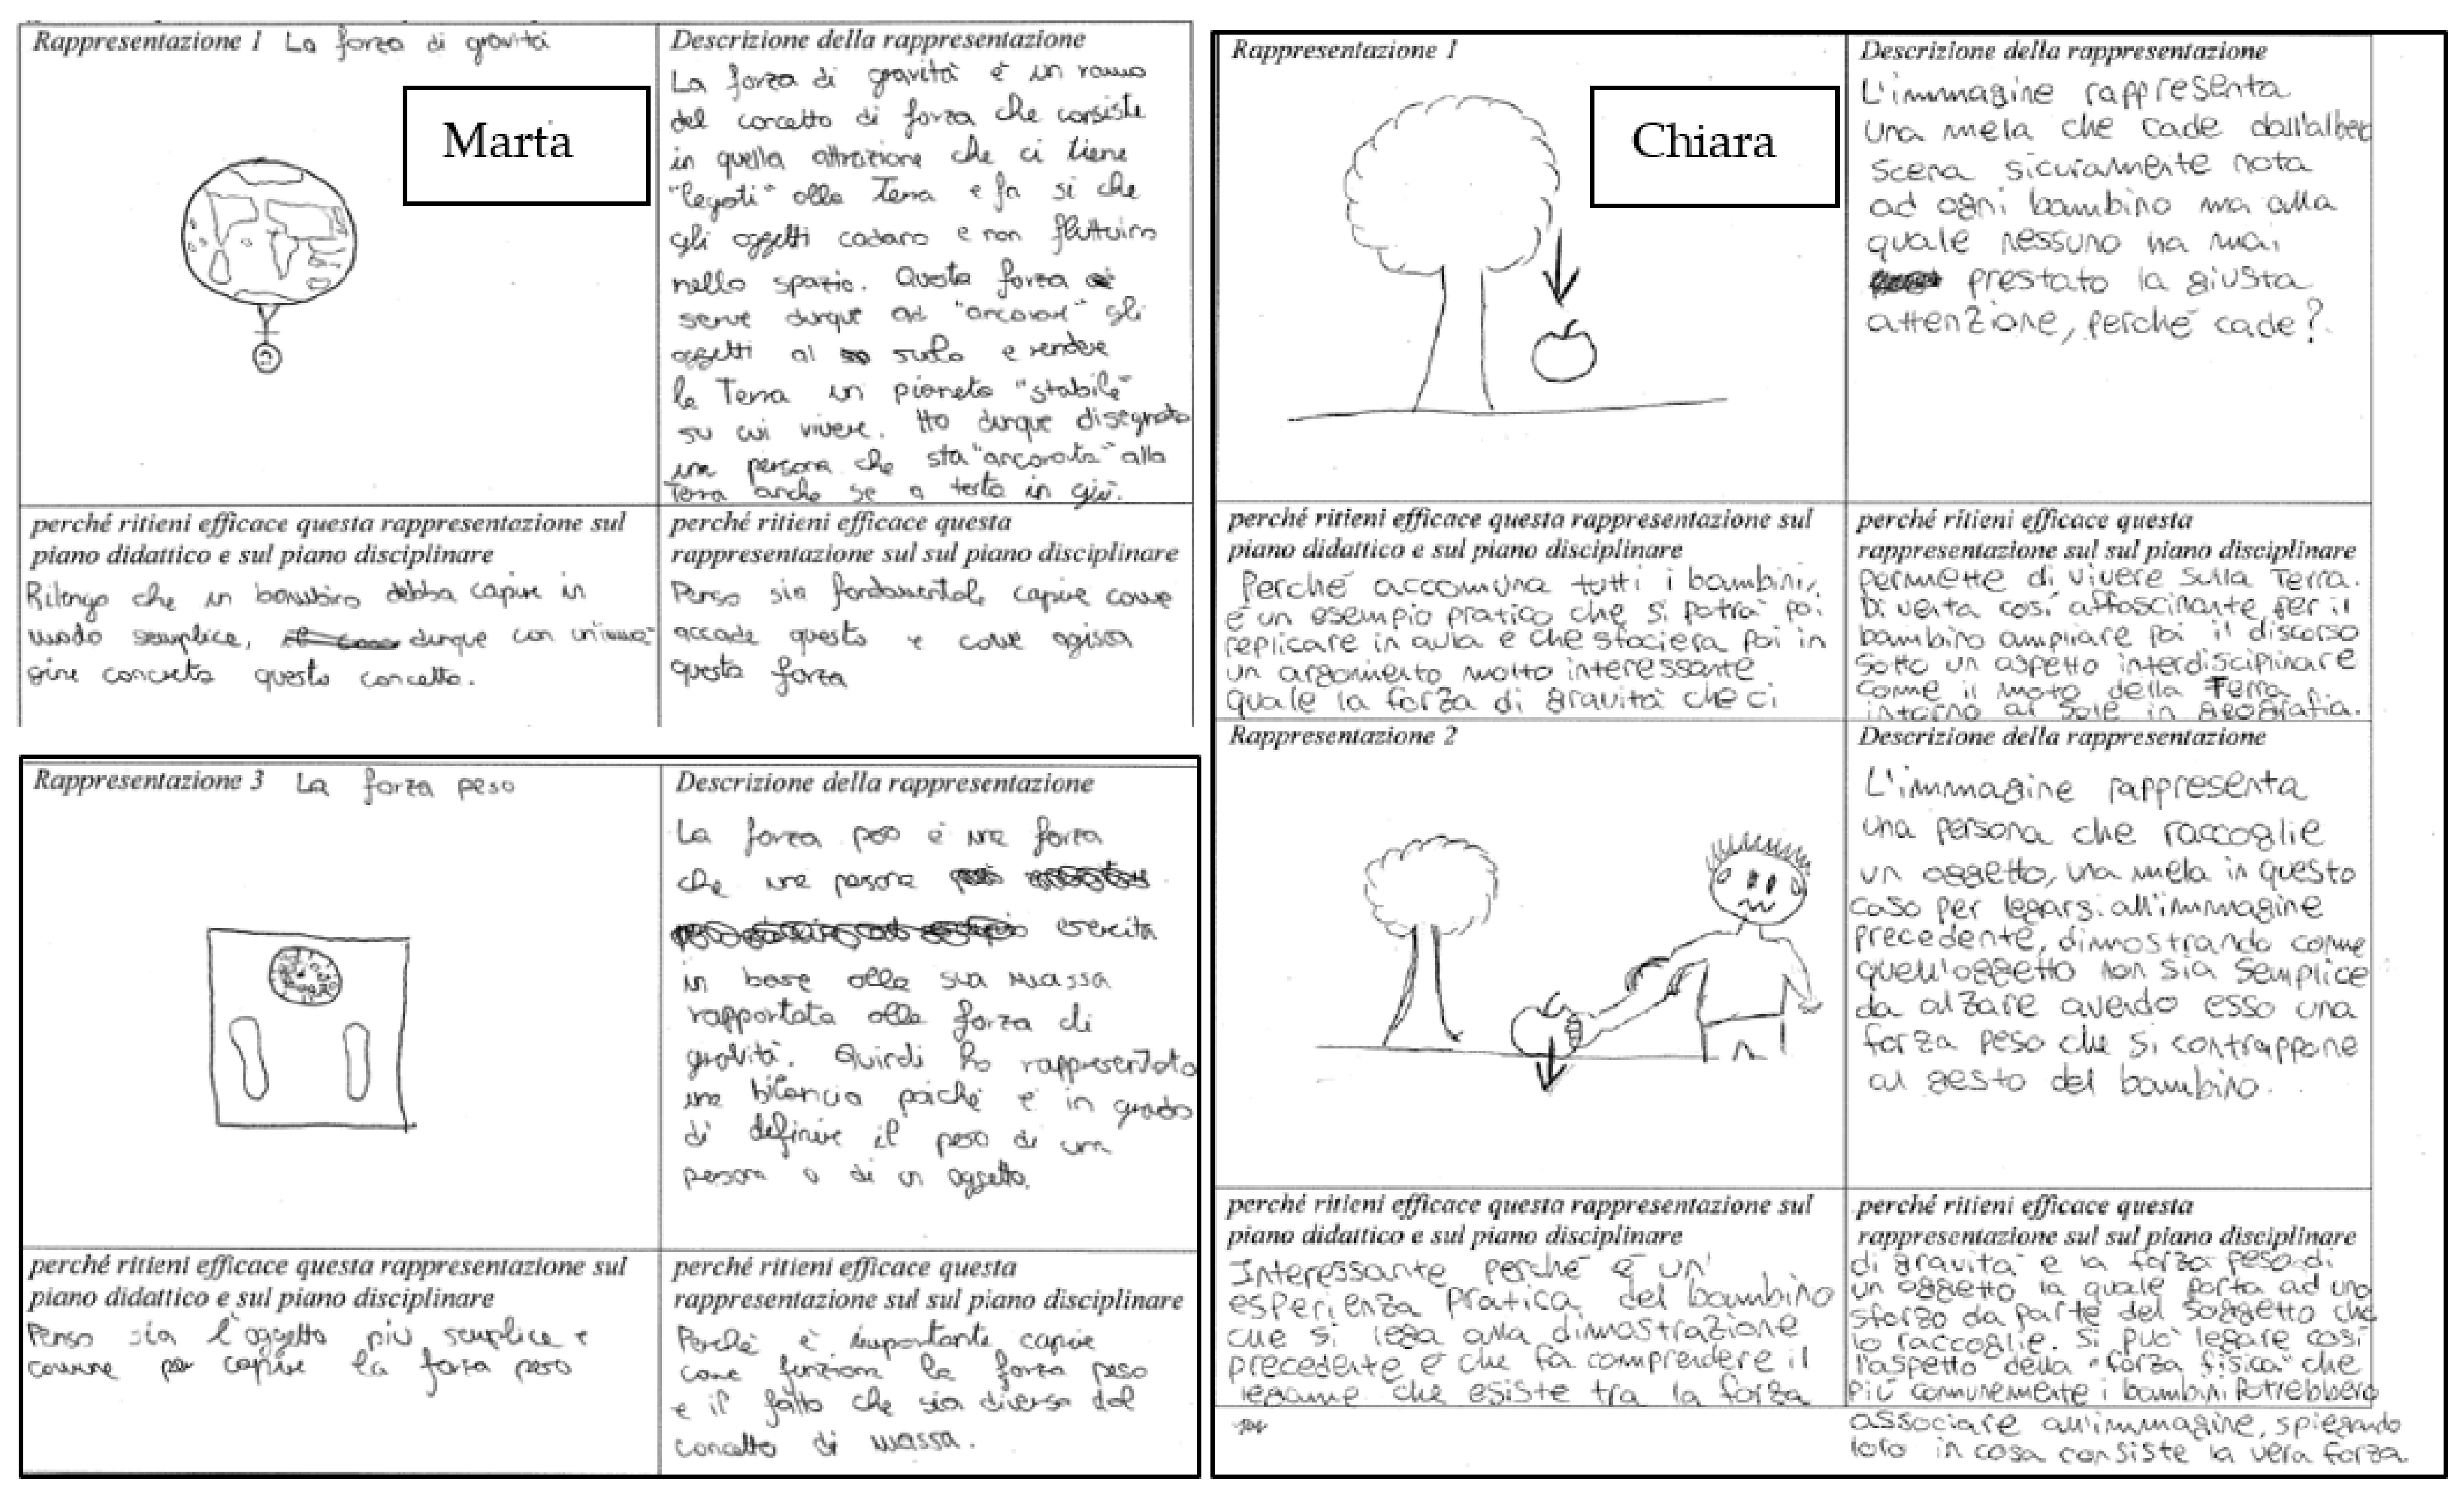 Rappresentazione 1 La forza di gravità
Marta
Descrizione della rappresentazione
La forza di gravità è un ramo
del concetto di forza che consiste
in quella attrazione che ci tiene
"legati" alla Terra e fa sì che
gli oggetti cadano e non fluttuino
nello spazio. Questa forza
serve dunque ad "ancorare" gli
oggetti al suolo e rendere
la Terra un pianeta "stabile"
su cui vivere. Ho dunque disegnato
una persona che sta "ancorata" alla
Terra anche se a testa in giù.
perché ritieni efficace questa rappresentazione sul
piano didattico e sul piano disciplinare
Ritengo che un bambino debba capire in
modo semplice, dunque con un'imma-
gine concreta questo concetto.
perché ritieni efficace questa
rappresentazione sul sul piano disciplinare
Penso sia fondamentale capire come
accade questo e come agisca
questa forza
Rappresentazione 3 La forza peso
Descrizione della rappresentazione
La forza peso è una forza
che una persona
esercita
in base alla sua massa
rapportata alla forza di
gravità. Quindi ho rappresentato
una bilancia poiché è in grado
di definire il peso di una
persona o di un oggetto.
perché ritieni efficace questa rappresentazione sul
piano didattico e sul piano disciplinare
Penso sia l'oggetto più semplice e
comune per capire la forza peso
perché ritieni efficace questa
rappresentazione sul sul piano disciplinare
Perché è importante capire
come funziona la forza peso
e il fatto che sia diversa dal
concetto di massa.
Rappresentazione 1
Chiara
Descrizione della rappresentazione
L'immagine rappresenta
una mela che cade dall'alber
scena sicuramente nota
ad ogni bambino ma alla
quale nessuno ha mai
prestato la giusta
attenzione, perché cade?
perché ritieni efficace questa rappresentazione sul
piano didattico e sul piano disciplinare
Perché accomuna tutti i bambini,
è un esempio pratico che si potrà poi
replicare in aula e che sfocierà poi in
un argomento molto interessante
quale la forza di gravità che ci
perché ritieni efficace questa
rappresentazione sul sul piano disciplinare
permette di vivere sulla Terra.
Diventa così affascinante per il
bambino ampliare poi il discorso
sotto un aspetto interdisciplinare
come il moto della Terra
intorno al Sole in geografia.
Rappresentazione 2
Descrizione della rappresentazione
L'immagine rappresenta
una persona che raccoglie
un oggetto, una mela in questo
caso per legarsi all'immagine
precedente, dimostrando come
quell'oggetto non sia semplice
da alzare avendo esso una
forza peso che si contrappone
al gesto del bambino.
perché ritieni efficace questa rappresentazione sul
piano didattico e sul piano disciplinare
Interessante perché è un'
esperienza pratica del bambino
che si lega alla dimostrazione
precedente e che fa comprendere il
legame che esiste tra la forza
perché ritieni efficace questa
rappresentazione sul sul piano disciplinare
di gravità e la forza peso di
un oggetto la quale porta ad uno
sforzo da parte del soggetto che
lo raccoglie. Si può legare così
l'aspetto della "forza fisica" che
più comunemente i bambini potrebbero
associare all'immagine, spiegando
loro in cosa consiste la vera forza